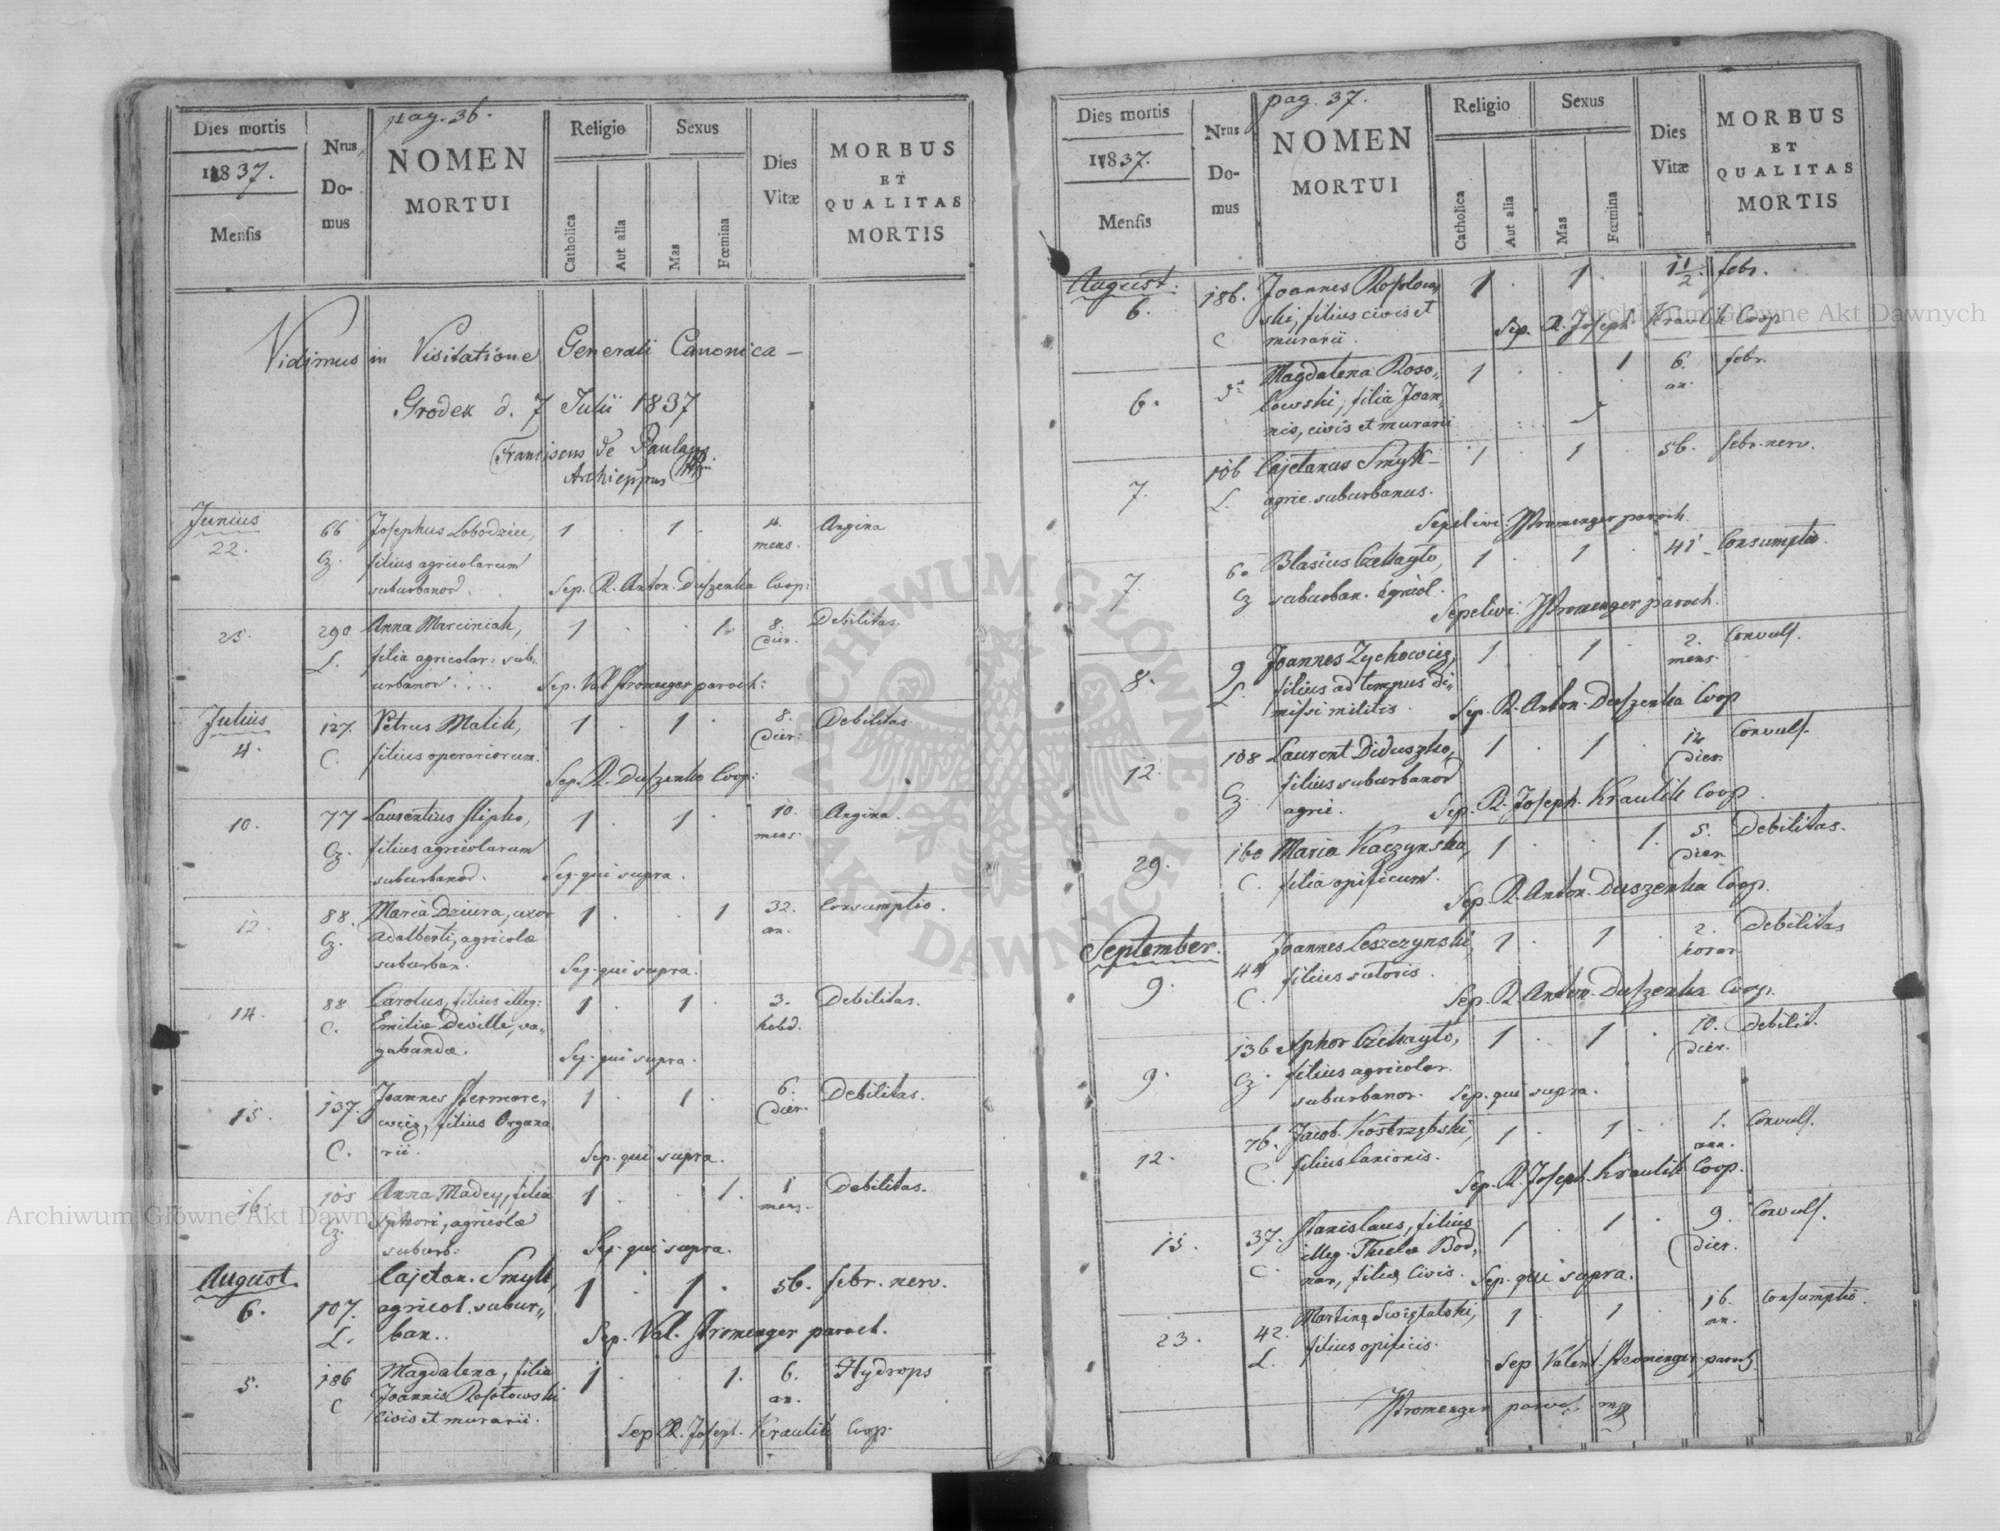 pag. 36.
Dies mortis
1837.
Mensis
Nrus
Do-
mus
NOMEN
MORTUI
Religio
Catholica
Aut alia
Sexus
Mas
Fœmina
Dies
Vitæ
MORBUS
ET
QUALITAS
MORTIS
Vidimus in Visitatione Generali Canonica –
Grodek d. 7 Julii 1837
Franciscus de Paula
Archieppus
Junius
22. 66 Josephus Lobodziec, 1 . 1 . 4. Angina
Cz. filius agricolarum mens.
suburbanor. Sep. R. Anton. Duszenka Coop:
25. 290 Anna Marciniak, 1 . . 1. 8. Debilitas.
L. filia agricolar: sub- dier.
urbanor. Sep. Val. Stromenger paroch:
Julius
4. 127. Petrus Malik, 1 . 1 . 8. Debilitas.
C. filius operariorum. dier:
Sep. R. Duszenko Coop:
10. 77 Laurentius Slipko, 1 . 1 . 10. Angina.
Cz. filius agricolarum mens.
suburbanor. Sep. qui supra.
12. 88. Maria Dziura, uxor 1 . . 1 32. Consumptio.
Cz. Adalberti, agricolæ an.
suburban. Sep. qui supra.
14. 88 Carolus, filius illeg: 1 . 1 . 3. Debilitas.
C. Emiliæ Deville, va- hebd.
gabandæ. Sep. qui supra.
15. 137. Joannes Sermore- 1 . 1 . 6. Debilitas.
wicz, filius Organa dier.
C. rii. Sep. qui supra.
16. 105 Anna Madey, filia 1 . . 1. 1 Debilitas.
Cz. Sphori, agricolæ mens.
suburb: Sep. qui supra.
August.
6. 107. Cajetan. Smyk, 1 . 1 . 56. febr. nerv.
L. agricol. subur-
ban.. Sep. Val. Stromenger paroch.
5. 186 Magdalena, filia 1 . . 1. 6. Hydrops
C Joannis Rosołowski an.
civis et murarii. Sep. R. Joseph. Kraulik Coop.
pag. 37.
Dies mortis
1837.
Mensis
Nrus
Do-
mus
NOMEN
MORTUI
Religio
Catholica
Aut alia
Sexus
Mas
Fœmina
Dies
Vitæ
MORBUS
ET
QUALITAS
MORTIS
August.
6. 186. Joannes Rosołow- 1 . 1 . 1½. febr.
ski, filius civis et
C murarii. Sep. R. Joseph. Kraulik Coop
6. Magdalena Roso- 1 . . 1 6. febr.
lowski, filia Joan- an.
nis, civis et murarii
7. 106 Cajetanus Smyk- 1 . 1 . 56. febr. nerv.
L. agric. suburbanus.
Sepelivi JStromenger paroch.
7. 60 Blasius Czekayło, 1 . 1 . 41 Consumptio.
Cz suburban. agricol.
Sepelivi JStromenger paroch.
8. 9 Joannes Zychowicz, 1 . 1 . 2. Convuls.
L. filius ad tempus di- mens.
missi militis. Sep. R. Anton. Duszenka Coop
12. 108 Laurent Diduszko, 1 . 1 . 12 Convuls.
Cz. filius suburbanor dier.
agric. Sep. R. Joseph. Kraulik Coop.
29. 160 Maria Kaczynska, 1 . . 1. 5. Debilitas.
C. filia opificum. dier.
Sep. R. Anton. Duszenka Coop.
September.
9. 44 Joannes Leszczynski, 1 . 1 . 2. Debilitas
C. filius sutoris. horar.
Sep. R. Anton. Duszenka Coop.
9. 136 Sphor Czekayło, 1 . 1 . 10. Debilit.
Cz. filius agricolar. dier.
suburbanor. Sep. qui supra.
12. 76. Jacob. Kostrzębski, 1 . 1 . 1. Convuls.
C. filius lanionis. ann.
Sep. R. Joseph. Kraulik Coop.
15. 37. Stanislaus, filius 1 . 1 . 9. Convuls.
illeg. Theclæ Bod, dier.
C. nar, filiæ Civis. Sep. qui supra.
23. 42. Martinq Swiętalski, 1 . 1 . 16. Consumptio.
L. filius opificis. an.
Sep. Valent. Stromenger paroch.
JStromenger paroch. mp
Archiwum Główne Akt Dawnych
Archiwum Główne Akt Dawnych
ARCHIWUM GŁÓWNE AKT DAWNYCH